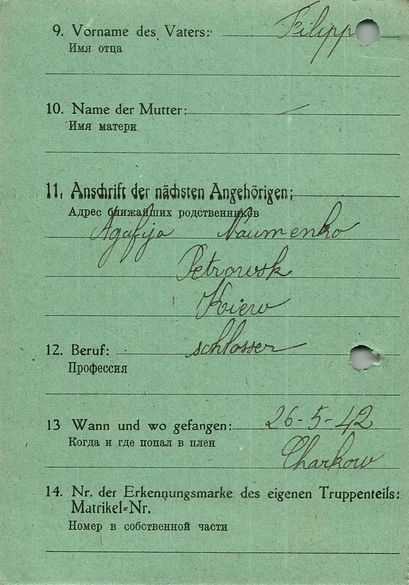 9. Vorname des Vaters: Filipp
Имя отца
10. Name der Mutter: —
Имя матери
11. Anschrift der nächsten Angehörigen:
Адрес ближайших родственников
Agafija Naumenko
Petrowsk
Kiew
12. Beruf: schlosser
Профессия
13 Wann und wo gefangen: 26-5-42
Когда и где попал в плен
Charkow
14. Nr. der Erkennungsmarke des eigenen Truppenteils:
Matrikel=Nr.
Номер в собственной части